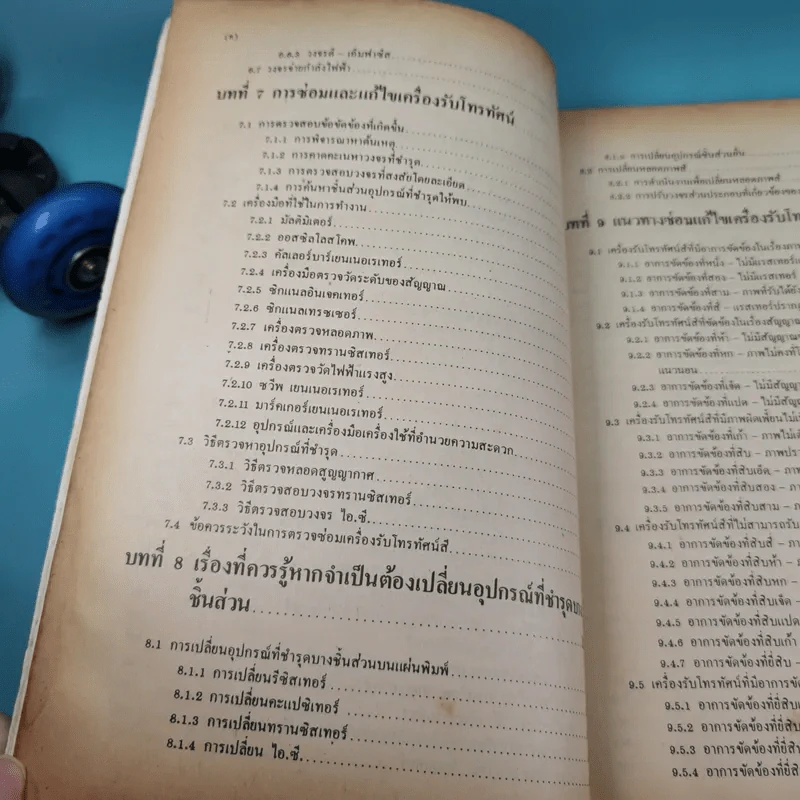 (๓)
๖.๗ วงจรจ่ายกำลังไฟฟ้า
บทที่ 7 การซ่อมและแก้ไขเครื่องรับโทรทัศน์
7.1 การตรวจสอบข้อขัดข้องที่เกิดขึ้น
7.1.1 การพิจารณาหาต้นเหตุ
7.1.2 การคาดคะเนหาวงจรที่ชำรุด
7.1.3 การตรวจสอบวงจรที่สงสัยโดยละเอียด
7.1.4 การค้นหาชิ้นส่วนอุปกรณ์ที่ชำรุดให้พบ
7.2 เครื่องมือที่ใช้ในการทำงาน
7.2.1 มัลติมิเตอร์
7.2.2 ออสซิลโลสโคพ
7.2.3 คัลเลอร์บาร์เยนเนอเรเทอร์
7.2.4 เครื่องมือตรวจวัดระดับของสัญญาณ
7.2.5 ซิกแนลอินเจคเทอร์
7.2.6 ซิกแนลเทรซเซอร์
7.2.7 เครื่องตรวจหลอดภาพ
7.2.8 เครื่องตรวจทรานซิสเทอร์
7.2.9 เครื่องตรวจวัดไฟฟ้าแรงสูง
7.2.10 ซวีพ เยนเนอเรเทอร์
7.2.11 มาร์คเกอร์เยนเนอเรเทอร์
7.2.12 อุปกรณ์และเครื่องมือเครื่องใช้ที่อำนวยความสะดวก
7.3 วิธีตรวจหาอุปกรณ์ที่ชำรุด
7.3.1 วิธีตรวจหลอดสูญญากาศ
7.3.2 วิธีตรวจสอบวงจรทรานซิสเทอร์
7.3.3 วิธีตรวจสอบวงจร ไอ.ซี.
7.4 ข้อควรระวังในการตรวจซ่อมเครื่องรับโทรทัศน์สี
บทที่ 8 เรื่องที่ควรรู้หากจำเป็นต้องเปลี่ยนอุปกรณ์ที่ชำรุดบาง
ชิ้นส่วน
8.1 การเปลี่ยนอุปกรณ์ที่ชำรุดบางชิ้นส่วนบนแผ่นพิมพ์
8.1.1 การเปลี่ยนรีซิสเทอร์
8.1.2 การเปลี่ยนคะแปซิเทอร์
8.1.3 การเปลี่ยนทรานซิสเทอร์
8.1.4 การเปลี่ยน ไอ.ซี.
การเปลี่ยนอุปกรณ์ชิ้นส่วนอื่น
การเปลี่ยนหลอดภาพสี
การดำเนินงานเพื่อเปลี่ยนหลอดภาพสี
การปรับวงจรส่วนประกอบที่เกี่ยวข้อง
บทที่ 9 แนวทางซ่อมแก้ไขเครื่องรับ
9.1 เครื่องรับโทรทัศน์สีที่มีอาการขัดข้องในเรื่อง
9.1.1 อาการขัดข้องที่หนึ่ง – ไม่มี
9.1.2 อาการขัดข้องที่สอง – ไม่มีแรสเทอร์
9.1.3 อาการขัดข้องที่สาม –
9.1.4 อาการขัดข้องที่สี่ –
9.2 เครื่องรับโทรทัศน์สีที่ขัดข้องในเรื่องสัญญาณ
9.2.1 อาการขัดข้องที่ห้า – ไม่มีสัญญาณ
9.2.2 อาการขัดข้องที่หก – ภาพไม่คงที่
แนวนอน
9.2.3 อาการขัดข้องที่เจ็ด – ไม่มี
9.2.4 อาการขัดข้องที่แปด – ไม่มี
9.3 เครื่องรับโทรทัศน์สีที่มีภาพผิดเพี้ยน
9.3.1 อาการขัดข้องที่เก้า – ภาพ
9.3.2 อาการขัดข้องที่สิบ –
9.3.3 อาการขัดข้องที่สิบเอ็ด –
9.3.4 อาการขัดข้องที่สิบสอง –
9.3.5 อาการขัดข้องที่สิบสาม –
9.4 เครื่องรับโทรทัศน์สีที่ไม่สามารถรับ
9.4.1 อาการขัดข้องที่สิบสี่ –
9.4.2 อาการขัดข้องที่สิบห้า –
9.4.3 อาการขัดข้องที่สิบหก –
9.4.4 อาการขัดข้องที่สิบเจ็ด –
9.4.5 อาการขัดข้องที่สิบแปด
9.4.6 อาการขัดข้องที่สิบเก้า
9.4.7 อาการขัดข้องที่ยี่สิบ –
9.5 เครื่องรับโทรทัศน์ที่มีอาการขัด
9.5.1 อาการขัดข้องที่ยี่สิบ
9.5.2 อาการขัดข้องที่ยี่สิบ
9.5.3 อาการขัดข้องที่ยี่สิบ
9.5.4 อาการขัดข้องที่ยี่สิบ